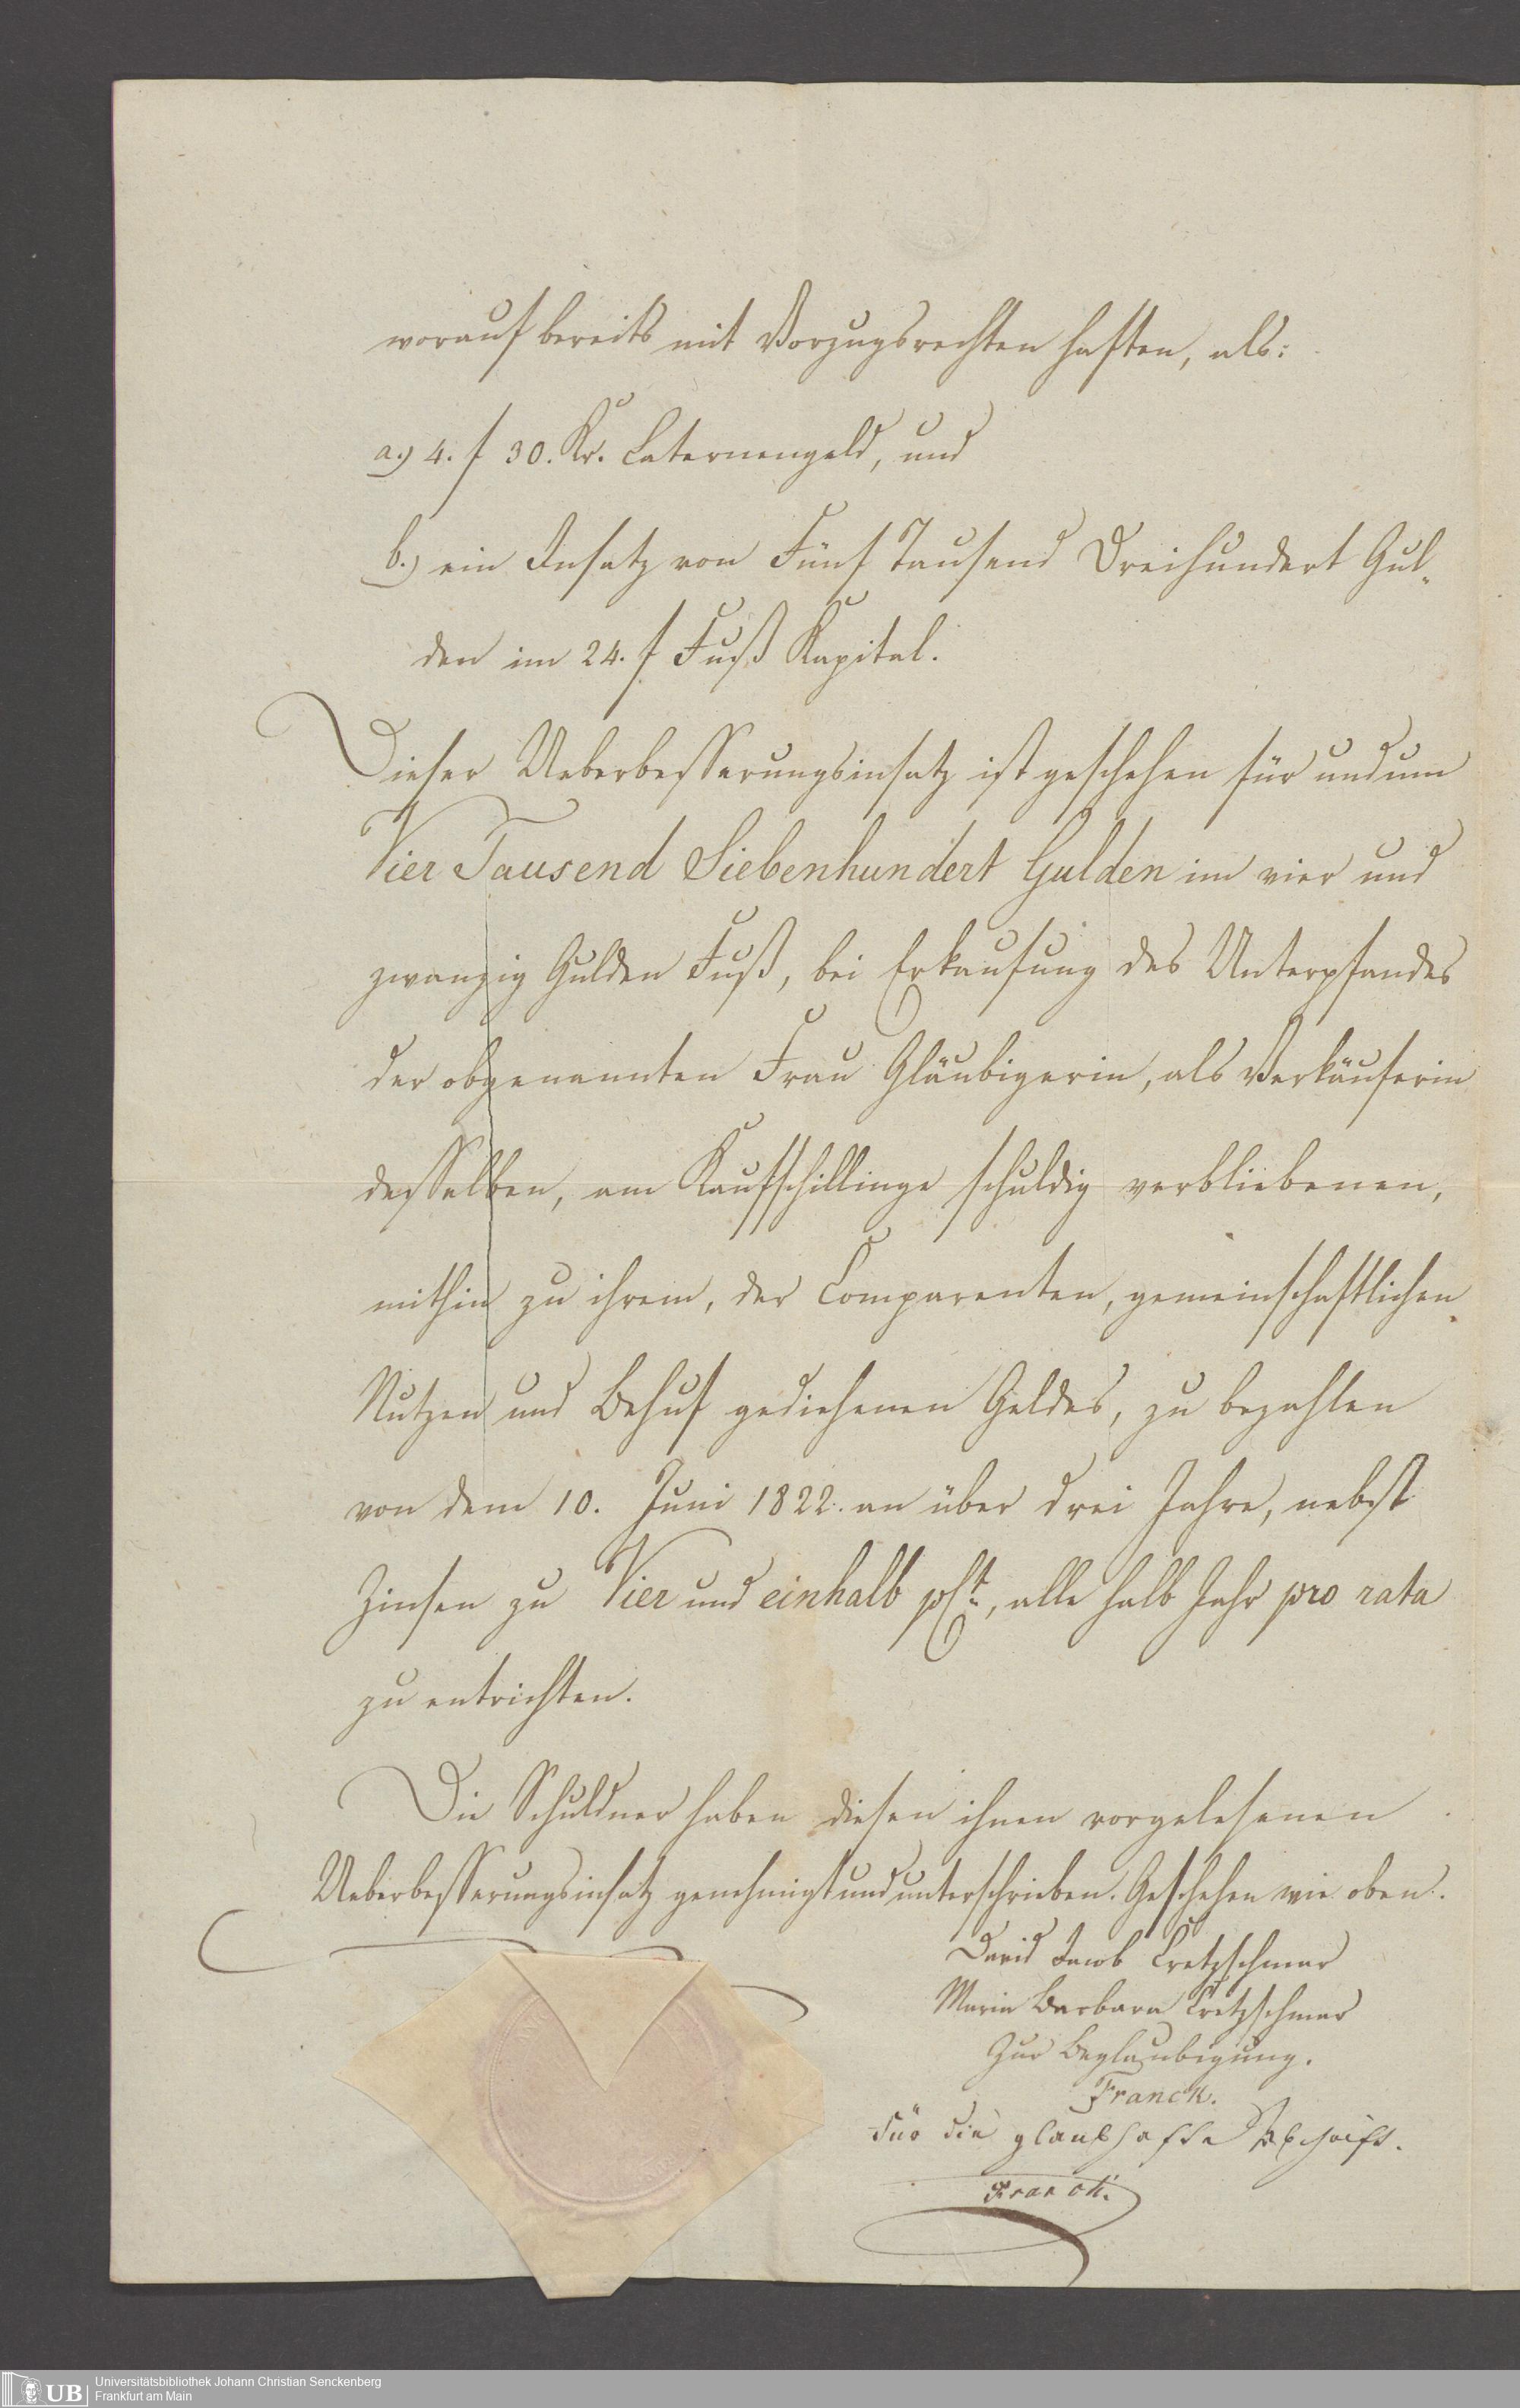 worauf bereits mit Vorzugsrechten haften, als:
a.) 4. f 30. Kr. Laternengeld, und
b.) ein Insatz von Fünf Tausend Dreihundert Gul-
den im 24. f Fuß Kapital.
Dieser Ueberbesserungsinsatz ist geschehen für und um
Vier Tausend Siebenhundert Gulden im vier und
zwanzig Gulden Fuß, bei Erkaufung des Unterpfandes
der obgenannten Frau Gläubigerin, als Verkäuferin
desselben, am Kaufschillinge schuldig verbliebenen,
mithin zu ihrem, der Comparenten, gemeinschaftlichen
Nutzen und Behuf gediehenen Geldes, zu bezahlen
von dem 10. Juni 1822. an über drei Jahre, nebst
Zinsen zu Vier und einhalb pCt, alle halb Jahr pro rata
zu entrichten.
Die Schuldner haben diesen ihnen vorgelesenen
Ueberbesserungsinsatz genehmigt und unterschrieben. Geschehen wie oben.
David Jacob Cretzschmar
Maria Barbara Cretzschmar
Zur Beglaubigung.
Franck.
Für die glaubhafte Abschrift.
Franck.
UB
Universitätsbibliothek Johann Christian Senckenberg
Frankfurt am Main